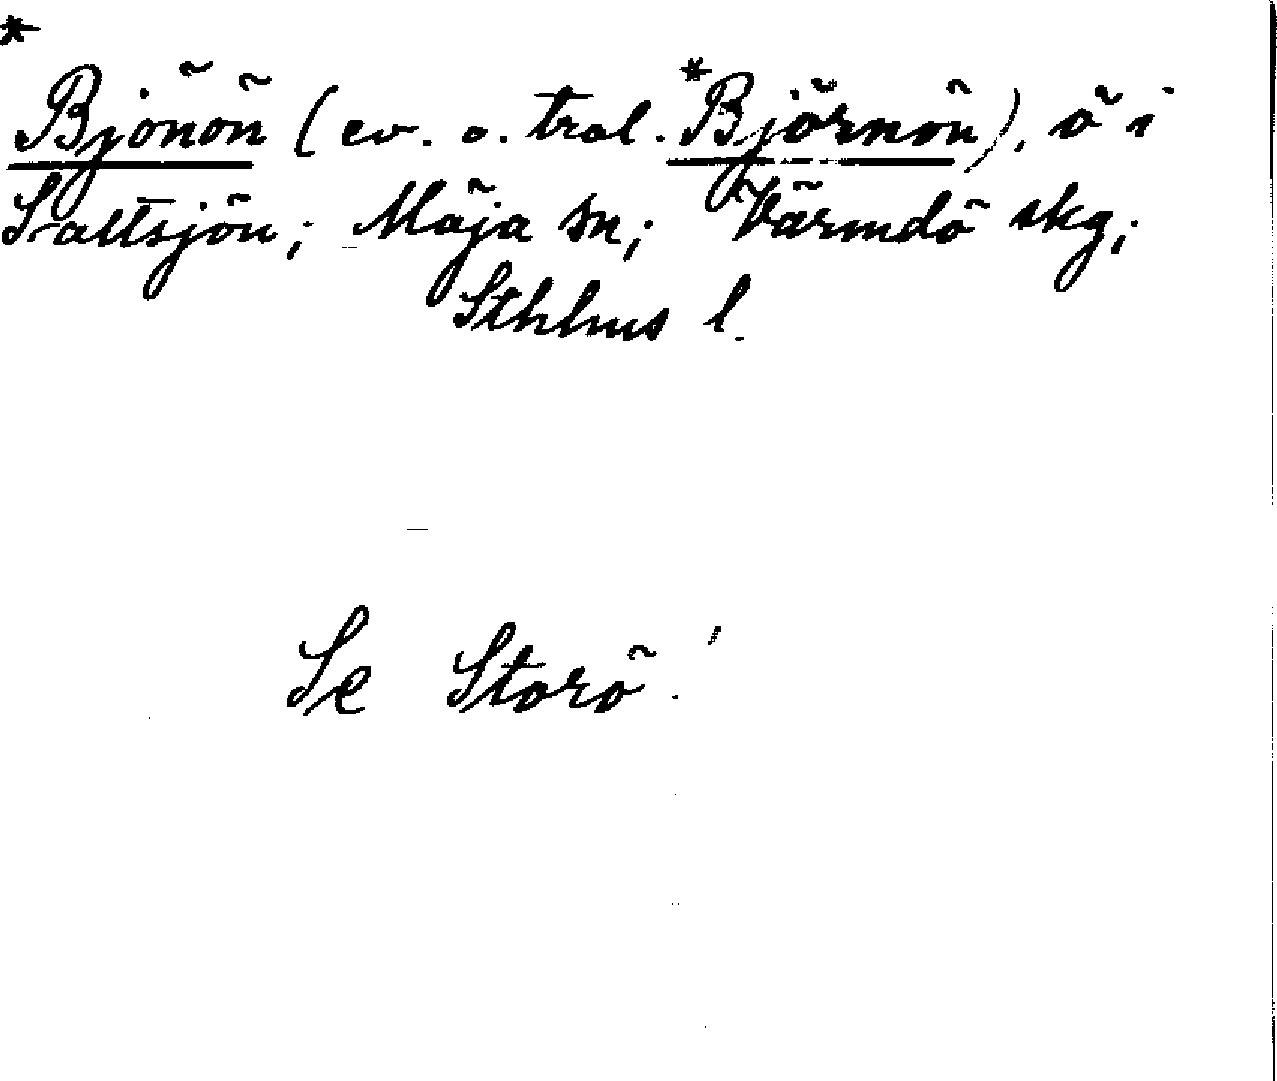 *
Bjönön (ev. o. tral. *Björnön), ö i
Saltsjön; Möja sn; Värmdö skg;
Sthlms l.
Se Storö!